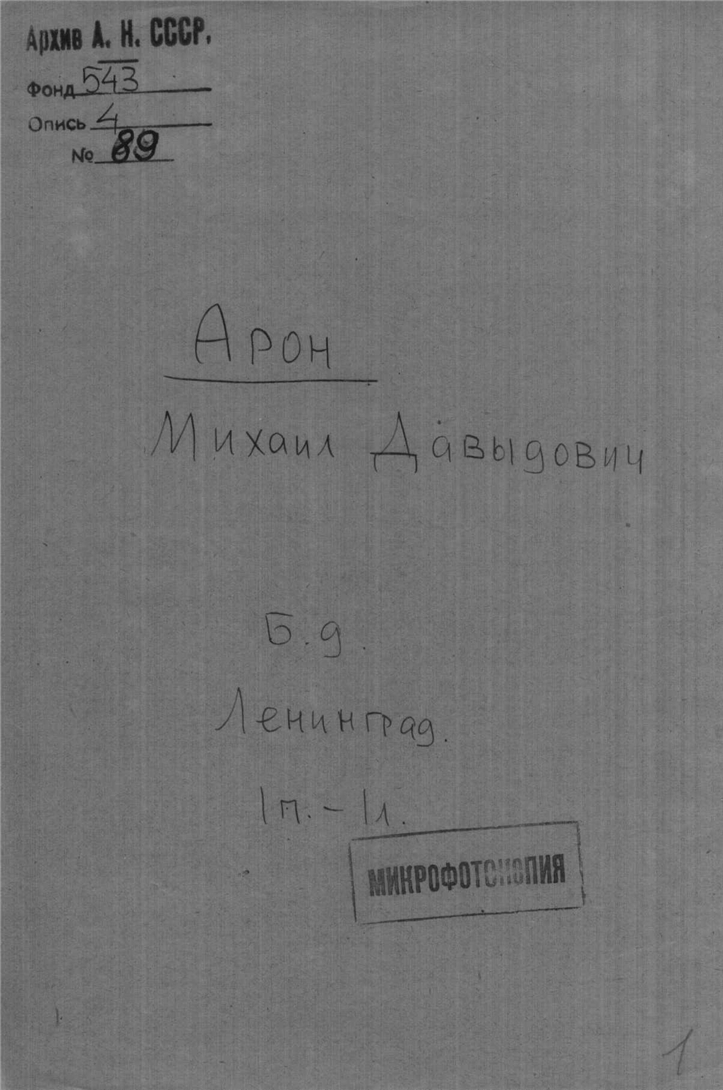 Архив А. Н. СССР.
Фонд 543
Опись 4
№ 89
Арон
Михаил Давыдович
Б.д.
Ленинград.
1п. – 1л.
МИКРОФОТОКОПИЯ
1